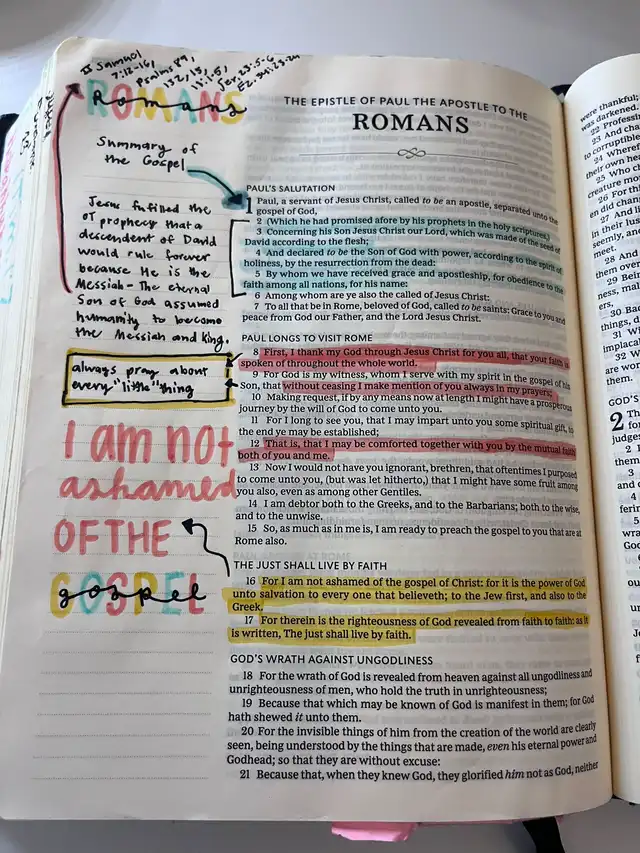 II Samuel
7:12-16,
Psalms 89,
132,
Jer. 23:5-6
Ez. 34:23-24
ROMANS
Romans
Summary of
the Gospel
Jesus fulfilled the
OT prophecy that a
descendent of David
would rule forever
because He is the
Messiah - The eternal
Son of God assumed
humanity to become
the Messiah and King.
always pray about
every "little" thing
I am not
ashamed
OF THE
GOSPEL
gospel
THE EPISTLE OF PAUL THE APOSTLE TO THE
ROMANS
PAUL'S SALUTATION
1 Paul, a servant of Jesus Christ, called to be an apostle, separated unto the
gospel of God,
2 (Which he had promised afore by his prophets in the holy scriptures,)
3 Concerning his Son Jesus Christ our Lord, which was made of the seed of
David according to the flesh;
4 And declared to be the Son of God with power, according to the spirit of
holiness, by the resurrection from the dead:
5 By whom we have received grace and apostleship, for obedience to the
faith among all nations, for his name:
6 Among whom are ye also the called of Jesus Christ:
7 To all that be in Rome, beloved of God, called to be saints: Grace to you and
peace from God our Father, and the Lord Jesus Christ.
PAUL LONGS TO VISIT ROME
8 First, I thank my God through Jesus Christ for you all, that your faith is
spoken of throughout the whole world.
9 For God is my witness, whom I serve with my spirit in the gospel of his
Son, that without ceasing I make mention of you always in my prayers;
10 Making request, if by any means now at length I might have a prosperous
journey by the will of God to come unto you.
11 For I long to see you, that I may impart unto you some spiritual gift, to
the end ye may be established;
12 That is, that I may be comforted together with you by the mutual faith
both of you and me.
13 Now I would not have you ignorant, brethren, that oftentimes I purposed
to come unto you, (but was let hitherto,) that I might have some fruit among
you also, even as among other Gentiles.
14 I am debtor both to the Greeks, and to the Barbarians; both to the wise,
and to the unwise.
15 So, as much as in me is, I am ready to preach the gospel to you that are at
Rome also.
THE JUST SHALL LIVE BY FAITH
16 For I am not ashamed of the gospel of Christ: for it is the power of God
unto salvation to every one that believeth; to the Jew first, and also to the
Greek.
17 For therein is the righteousness of God revealed from faith to faith: as it
is written, The just shall live by faith.
GOD'S WRATH AGAINST UNGODLINESS
18 For the wrath of God is revealed from heaven against all ungodliness and
unrighteousness of men, who hold the truth in unrighteousness;
19 Because that which may be known of God is manifest in them; for God
hath shewed it unto them.
20 For the invisible things of him from the creation of the world are clearly
seen, being understood by the things that are made, even his eternal power and
Godhead; so that they are without excuse:
21 Because that, when they knew God, they glorified him not as God, neither
were thankful;
was darkened.
22 Professin
23 And cha
to corruptibl
24 Wheref
their own he
25 Who ch
creature mo
26 For th
en did chan
27 And li
in their lus
seemly, and
meet.
28 And
them over
29 Bein
ness, mal
ers,
30 Bac
things, d
31 W
implacab
32 W
are wor
them.
GOD'S
2 T
for
judge
2